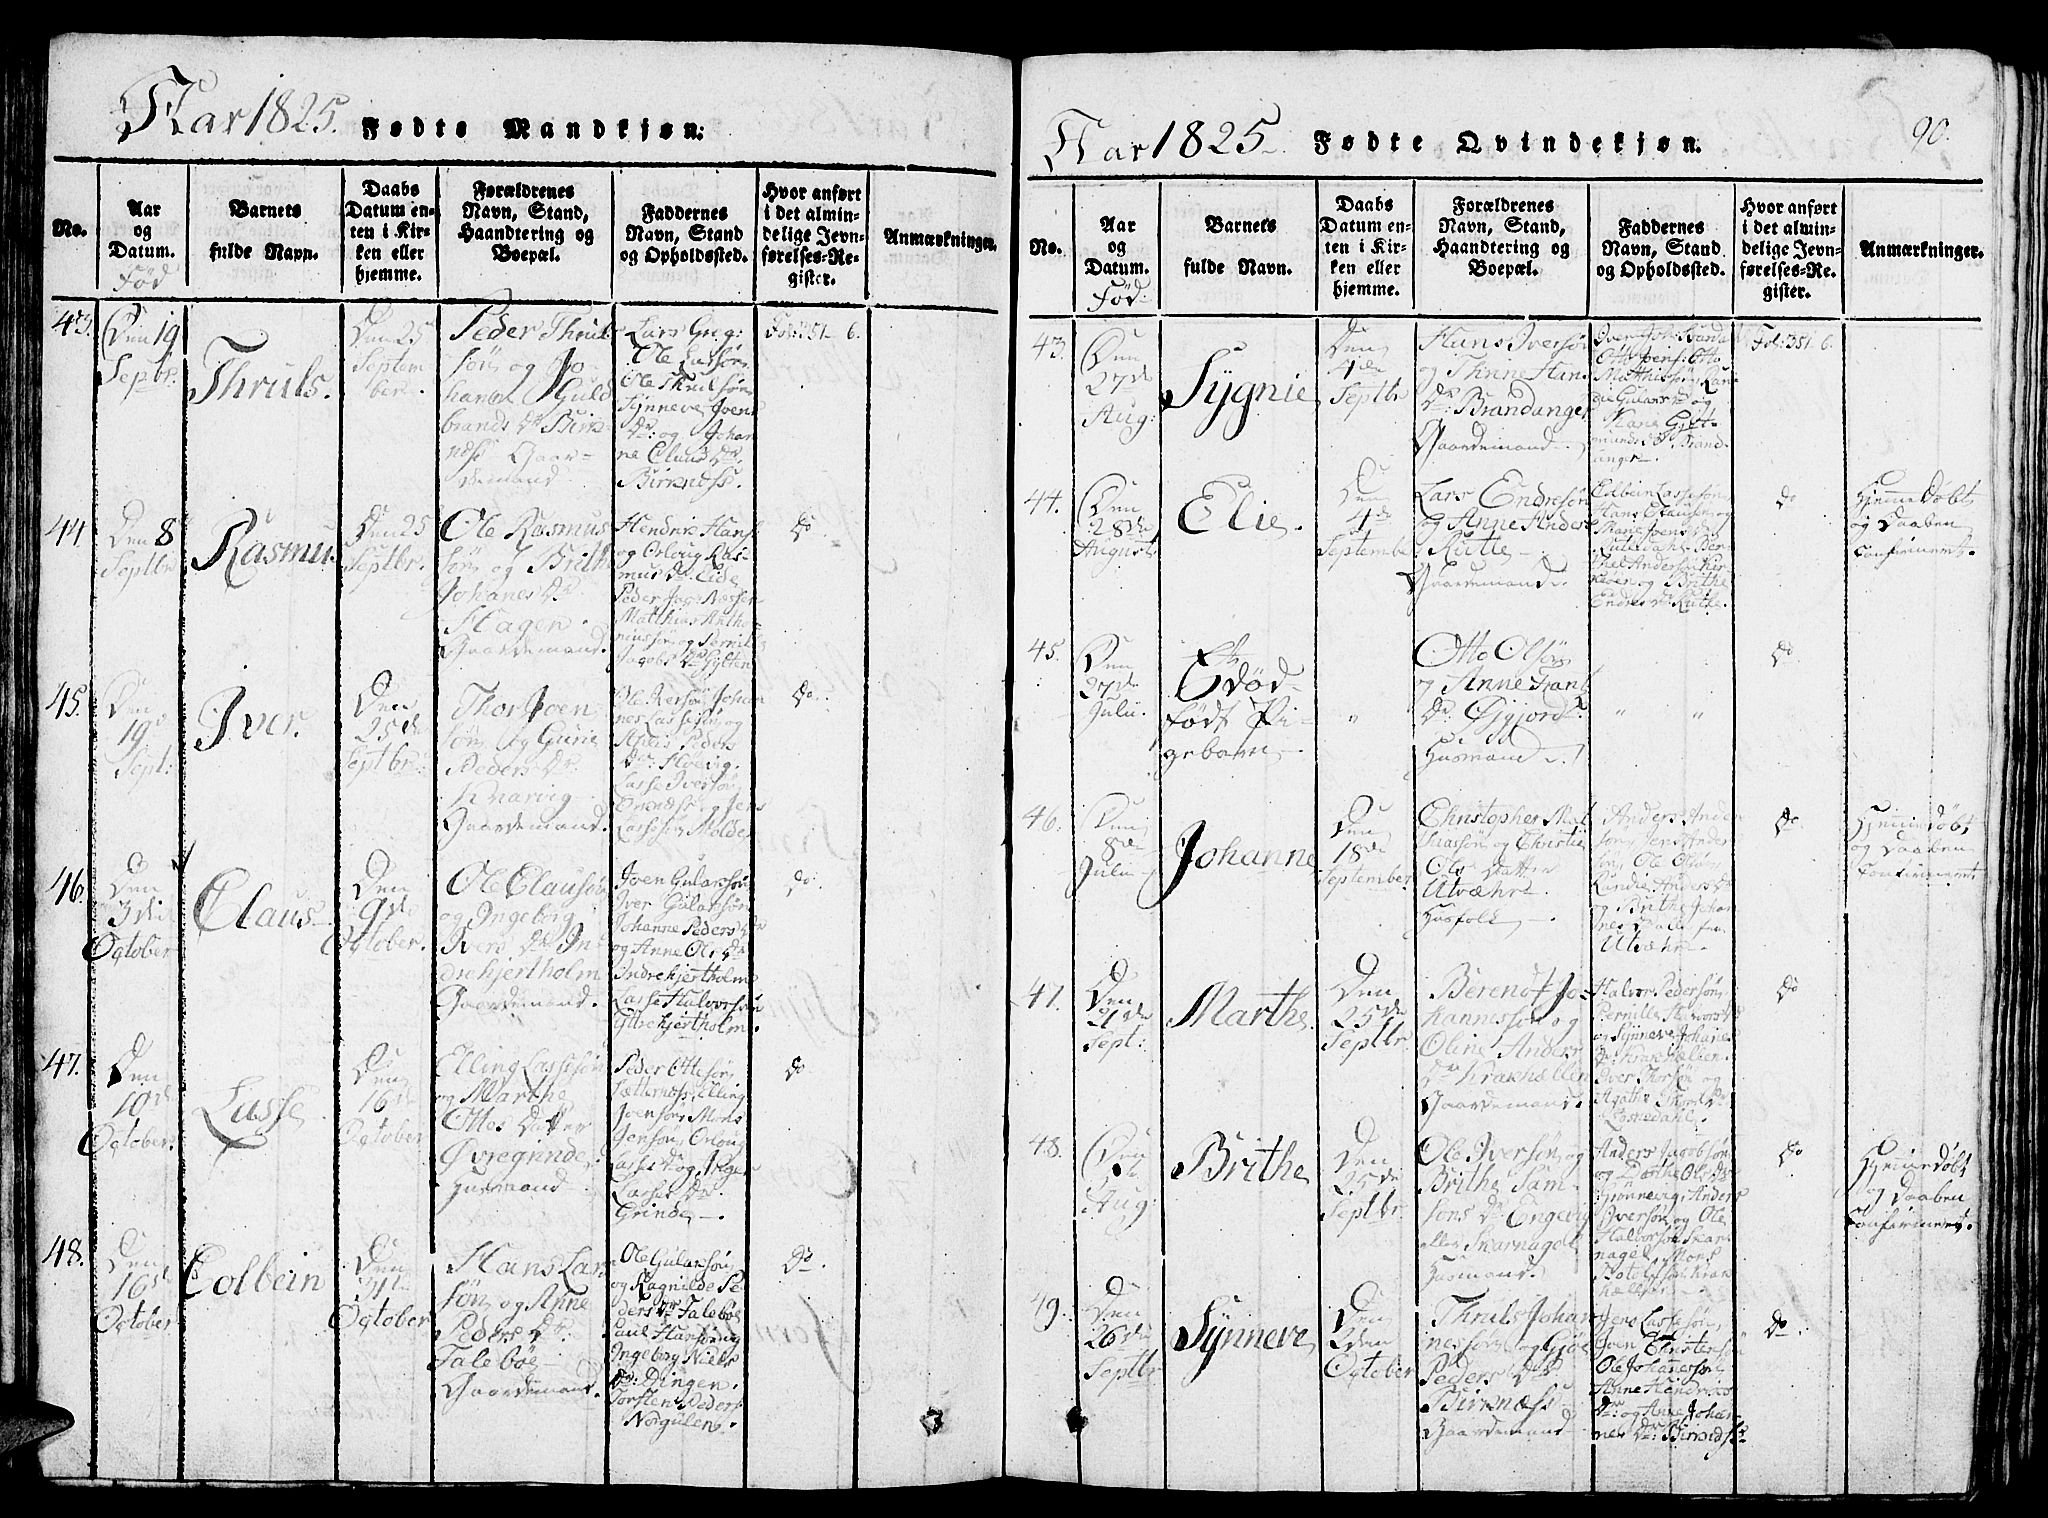 Aar 1825. Fødte Mandkjøn:
No.
Aar
og
Datum.
Fød
Barnets
fulde Navn.
Daabs
Datum en-
ten i Kir-
ken eller
hjemme.
Forældrenes
Navn, Stand,
Haandtering og
Boepæl.
Faddernes
Navn, Stand
og Opholdssted.
Hvor anført
i det almin-
delige Jevn-
førelses-Re-
gister.
Anmærkninger.
43.
Den 19
Septbr:
Thruls.
Den 25
Septem
ber
Peder Thruls
søn og Jo-
hanne Guld
brands Dr Birk-
næs Gaar-
demand
Lars Greg:
Ole Lassøn
Ole Thrulsøn
Synneve Joens
Dr: og Johan
ne Claus Dr
Birknæss.
Fol: 351 6.
44.
Den 8
Septbr
Rasmus
Den 25
Septbr.
Ole Rasmus
søn og Brithe
Johanes Dr
Hagen
Gaardemand.
Hendrik Hans
og Orloug Ras-
mus Dr Eide
Peder Jag: Nessen
Matthias Antho-
niussøn og Pernille
Jacobs Dr Gylten
Do
45.
Den
19de
Sept:
Iver.
Den
25de
Septbr
Thor Joen
søn og Gurie
Peders Dr:
Gaardemand.
Ole Iversøn Johan
nes Lassesøn og
Peders
Lasse Iversøn
og Jens
Lassesøn Molde
Do
46.
Den
3die
October
Claus
Den
9de
October.
Ole Clausøn
og Ingeborg
Ivers Dr In-
drehjertholm
Gaardemand.
Joen Gularssøn
Iver Gularsøn
Johanne Peders Dr
og Anne Ols Dr
Indrehjertholm
Lasse Halvorsøn
Ytrehjertholm.
do.
47.
Den
10de
October.
Lasse
Den
16de
October
Elling Lassesøn
og Marthe
Ottos Datter
Øvregrinde
Husmand
Peder Ottesøn
Sætternæss, Elling
Joensøn, Mons
Jensøn, Orloug
Lasse Dr og Inger
Lasses Dr.
Grinde.
do
48.
Den
16de
October
Colbein
Den
October
Hans Lar
søn og Anne
Peders Dr:
Taleboe
Gaardemand.
Ole Gularsøn
og Ragnilde Pe
ders Dr Taleboe
Paul Hansøn og
Ingeborg Niels
Dr: Dingen.
Torsten Peders
Norgulen.
Do.
Aar 1825. Fødte Qvindekjøn.
90.
No.
Aar
og
Datum.
Fød:
Barnets
fulde Navn.
Daabs
Datum en-
ten i Kir-
ken eller
hjemme.
Forældrenes
Navn, Stand,
Haandtering og
Boepæl.
Faddernes
Navn, Stand
og Opholdssted.
Hvor anført
i det almin-
delige Jevn-
førelses-Re-
gister.
Anmærkninger.
43.
Den
27de
Aug:
Sygnie
Den
4de
Septbr
Hans Iversøn
og Thnne Hans
Dr: Brandanger
Gaardemand
Otto
Matthissøn
die Gulars Dr og
Marie Gjert
munds Dr Brand
anger
Fol: 351 6.
44.
Den
28de
August
Elie.
Den
4de
September
Lars Endresøn
og Anne Anders
Rutle
Gaardemand.
Colbein Lassesøn
Hans Clausen og
Marie Joens Dr
Rutledahl Ber-
thel Andersøn
og Brithe
Endres Dr Rutle.
do
Hjemmedøbt
og Daaben
confirmeret.
45.
Den
27de
Julii
Et
Død-
født Pi-
gebarn
"
Otto Olsøn
og Anne Frants
Dr: Øygjord
Husmand
" "
do
46.
Den
8de
Julii
Johanne
Den
18de
September.
Christopher Mat
hiassøn og Christie
Ols Datter
Utvæhr
Husfolk
Anders Ander
søn, Jens Ander
søn, Ole Olsøn
Randie Anders Dr
og Brithe Johan
nes Dr alle fra
Utvæhr
do.
Hjemmedøbt
og Daaben
confirmeret
47.
Den
21de
Sept:
Marthe
Den
25de
Septbr.
Berendt Jo-
hannessøn og
Oline Anders
Dr Krakhellen
Gaardemand.
Halvor Pedersøn
Pernille Halvors Dr
og Synneve Johane
Dr. Krakhellen.
Iver Thorsøn og
Agathe
Losnedahl.
do
48.
Den
Aug:
Brithe
Den
25de
Septbr
Ole Iversøn og
Brithe Sam-
sons Dr Engevig
eller Skarnagel
Husmand.
Anders Jacobsøn
og Dorthe Ols Dr
Grønnevig, Anders
Iversøn og Ole
Halvorsøn Skar
nagel, Mons
Botolfsøn Krak
hellen
do
Hjemmedøbt
og Daaben
confirmeret.
49.
Den
26de
Septbr
Synneve
Den
2den
October
Thruls Johan
nessøn og Gjøe
Peders Dr
Birknæss
Gaardemand
Jens Lassesøn,
Joen Christensøn
Ole Johanesøn
Anne Hendriks
Dr: og Anne Johan-
nes Dr: Birknæss
do.